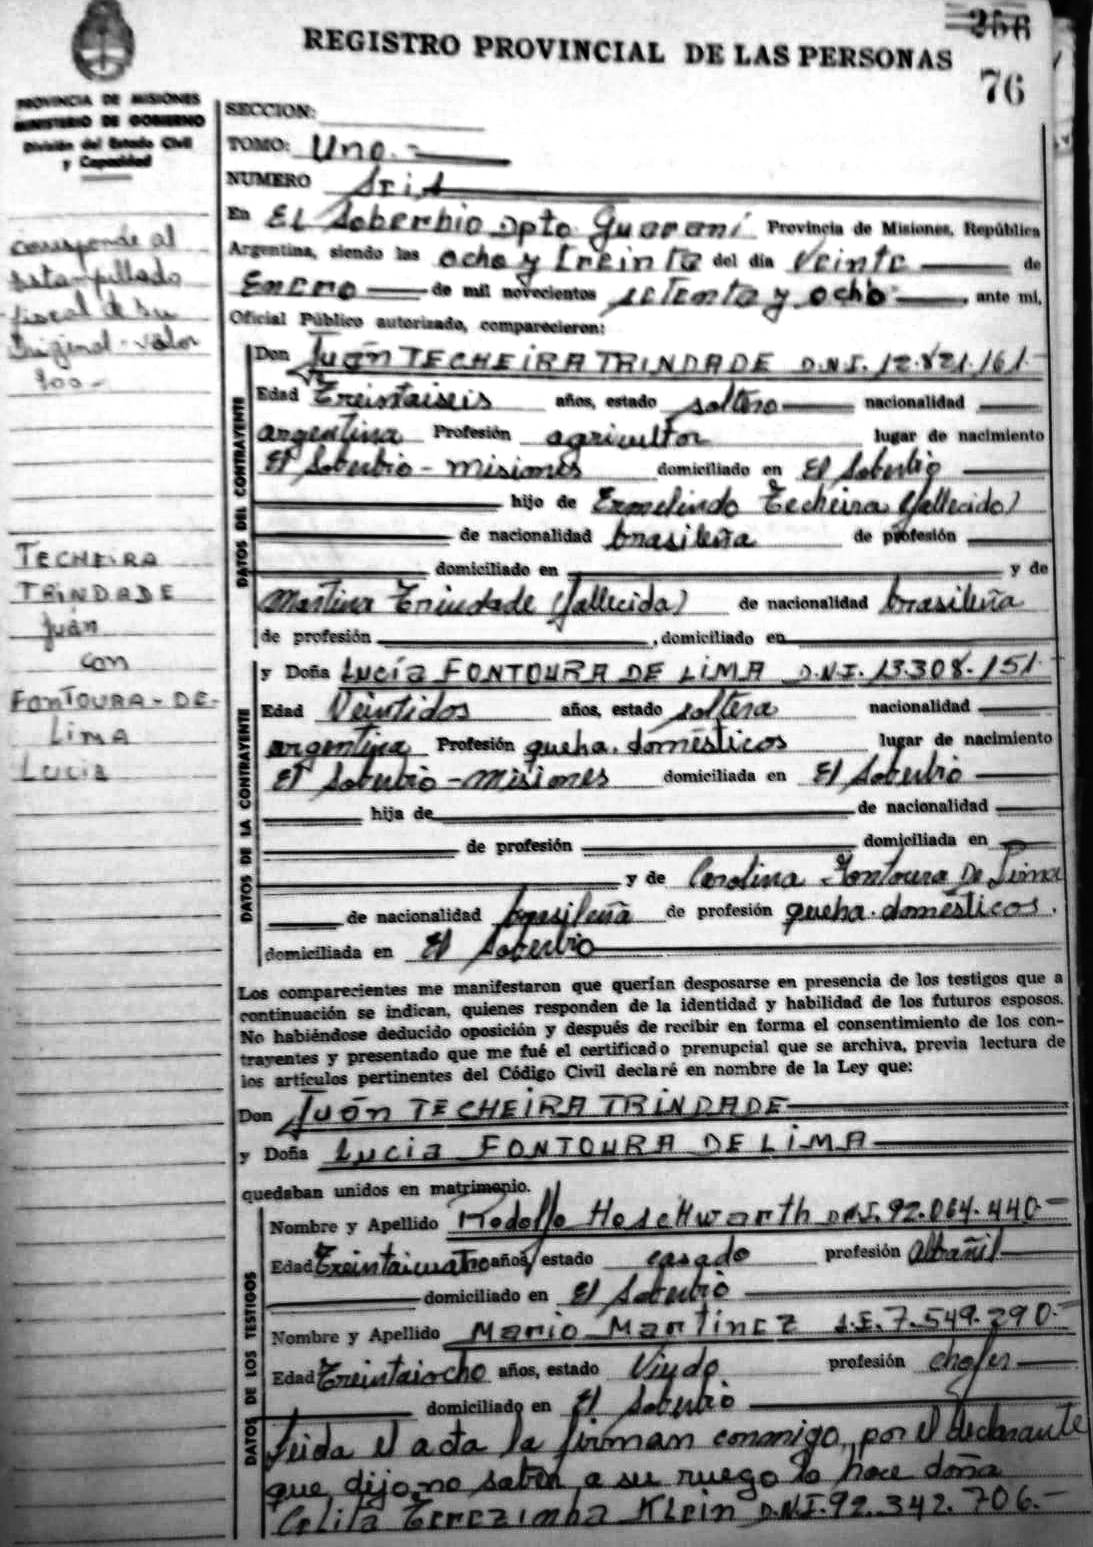 256
REGISTRO PROVINCIAL DE LAS PERSONAS
76
PROVINCIA DE MISIONES
MINISTERIO DE GOBIERNO
División del Estado Civil
y Capacidad
corresponde al
estampillado
fiscal de su
original - valor
TECHEIRA
TRINDADE
Juán
con
FONTOURA-DE-
LIMA
Lucia
SECCION:
TOMO: Uno.-
NUMERO Seis
En El Soberbio Dpto Guaraní Provincia de Misiones, República
Argentina, siendo las ocho y treinta del día veinte de
Enero de mil novecientos setenta y ocho, ante mi,
Oficial Público autorizado, comparecieron:
DATOS DEL CONTRAYENTE
Don Juán TECHEIRA TRINDADE D.N.I. 12.821.161.-
Edad Treintaiseis años, estado soltero nacionalidad
argentina Profesión agricultor lugar de nacimiento
El Soberbio - Misiones domiciliado en El Soberbio
hijo de Ermelindo Techeira (fallecido)
de nacionalidad brasileña de profesión
domiciliado en y de
Martina Trindade (fallecida) de nacionalidad brasileña
de profesión , domiciliado en
DATOS DE LA CONTRAYENTE
y Doña Lucía FONTOURA DE LIMA D.N.I. 13.308.151.-
Edad Veintidos años, estado soltera nacionalidad
argentina Profesión queha. domésticos lugar de nacimiento
El Soberbio - Misiones domiciliada en El Soberbio
hija de de nacionalidad
de profesión domiciliada en
y de Carolina Fontoura De Lima
de nacionalidad brasileña de profesión queha. domésticos.
domiciliada en El Soberbio
Los comparecientes me manifestaron que querían desposarse en presencia de los testigos que a
continuación se indican, quienes responden de la identidad y habilidad de los futuros esposos.
No habiéndose deducido oposición y después de recibir en forma el consentimiento de los con-
trayentes y presentado que me fué el certificado prenupcial que se archiva, previa lectura de
los artículos pertinentes del Código Civil declaré en nombre de la Ley que:
Don Juán TECHEIRA TRINDADE
y Doña Lucia FONTOURA DE LIMA
quedaban unidos en matrimonio.
DATOS DE LOS TESTIGOS
Nombre y Apellido Rodolfo Hoschwarth D.N.I. 92.064.440-
Edad Treintaicuatro años, estado casado profesión Albañil
domiciliado en El Soberbio
Nombre y Apellido Mario Martinez L.E. 7.549.290.-
Edad Treintaiocho años, estado Viudo profesión chofer
domiciliado en El Soberbio
Leida el acta la firman conmigo, por el declarante
que dijo no saber, a su ruego lo hace doña
Celita Terezinha Klein D.N.I. 92.342.706.-